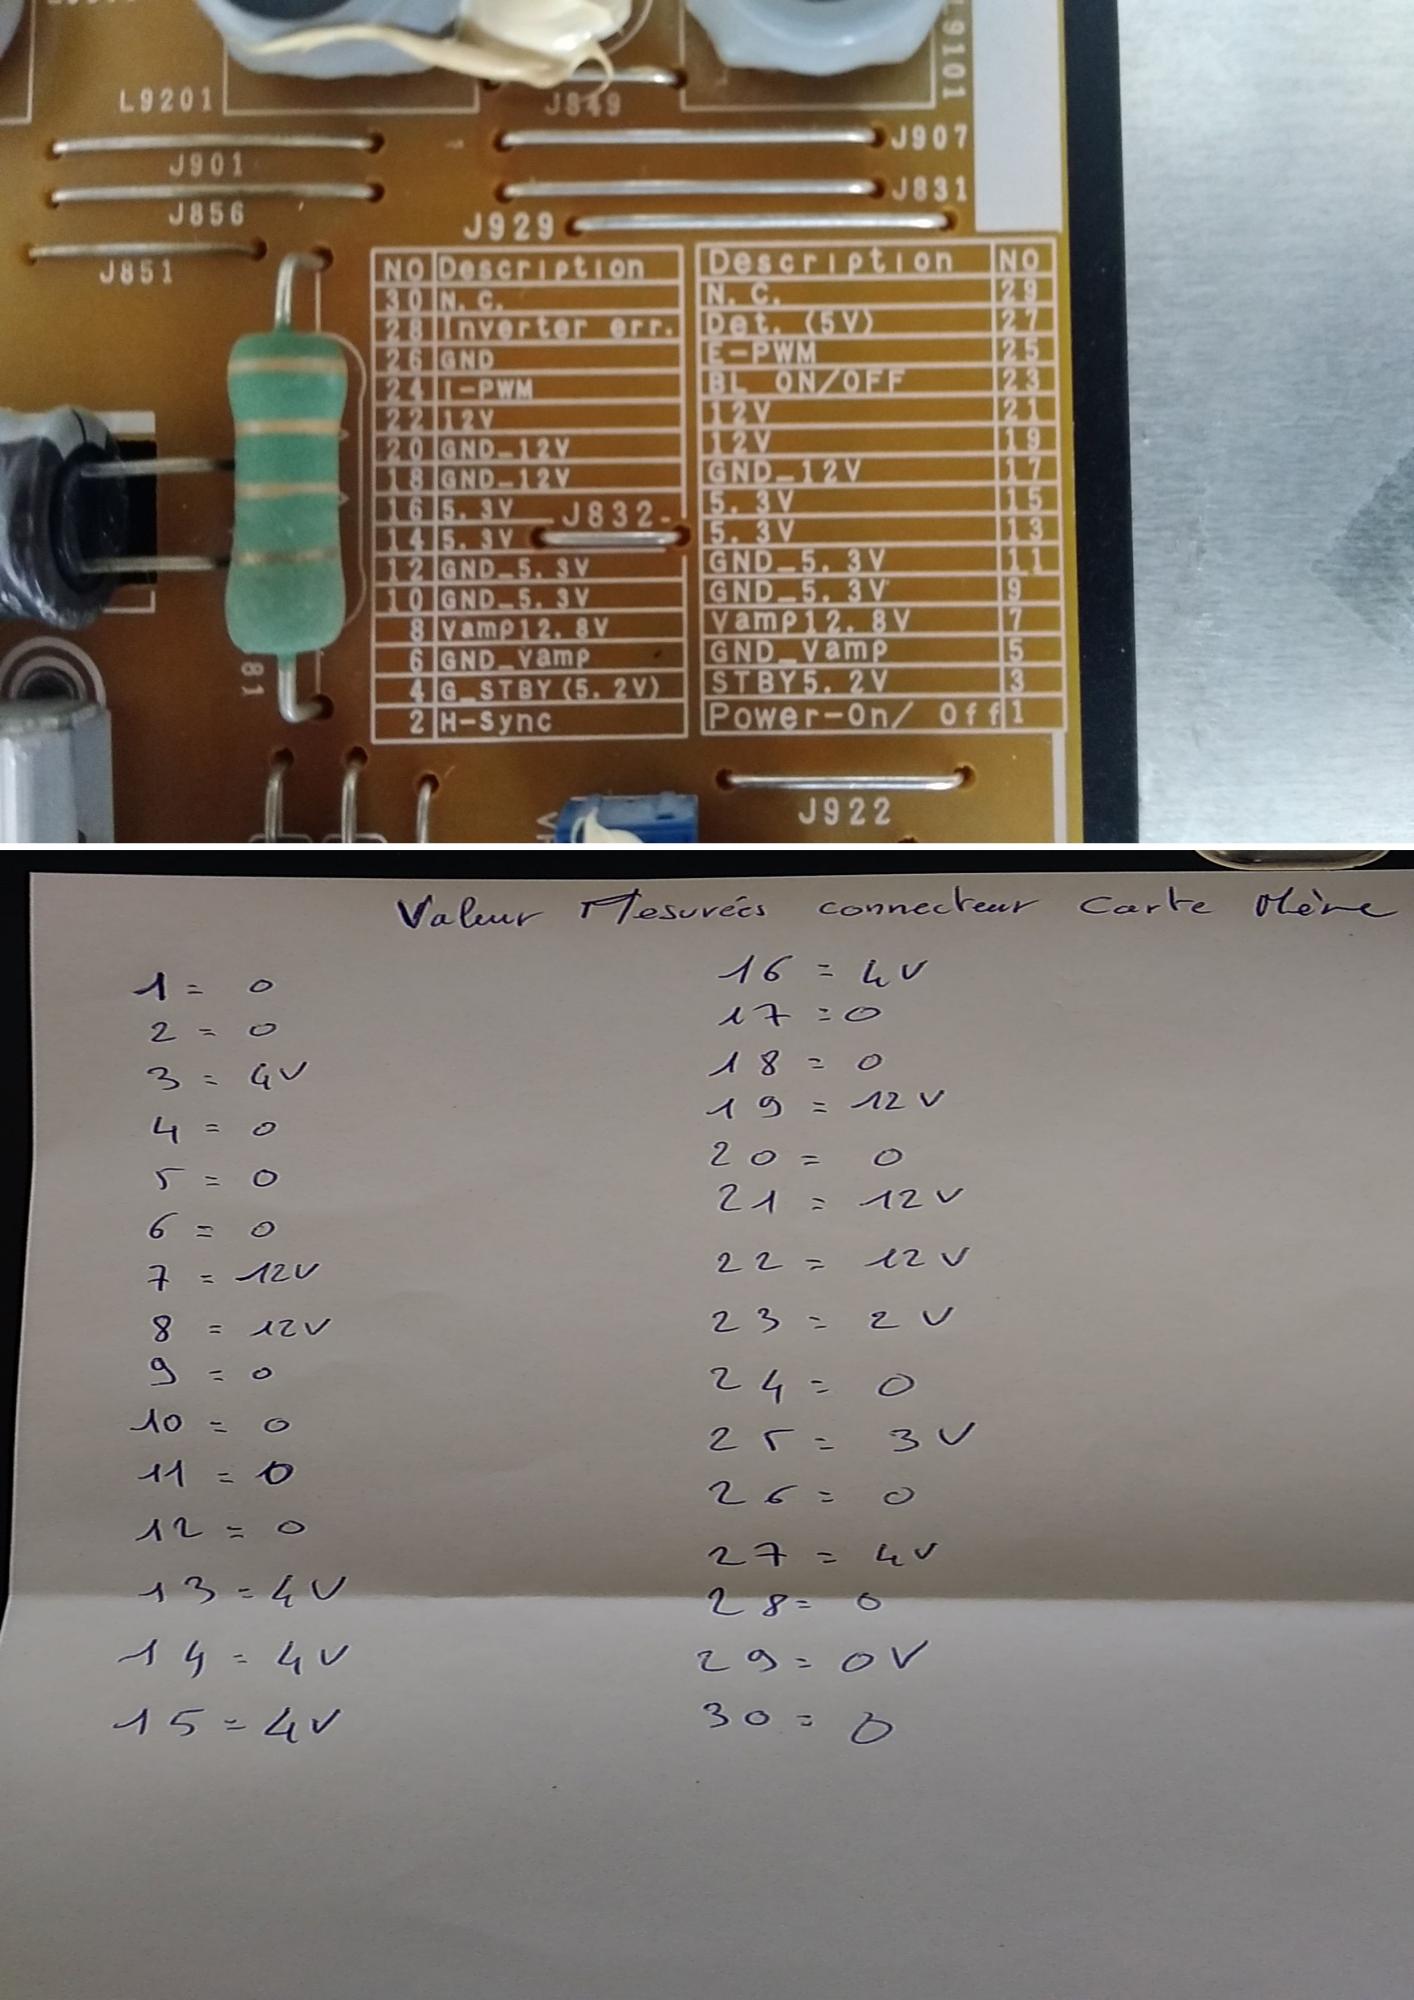 L9201
J849
L9101
J901
J907
J856
J831
J929
J851
NO Description Description NO
30 N.C. N.C. 29
28 Inverter err. Det. (5V) 27
26 GND E-PWM 25
24 I-PWM BL ON/OFF 23
22 12V 12V 21
20 GND_12V 12V 19
18 GND_12V GND_12V 17
16 5.3V 5.3V 15
J832
14 5.3V 5.3V 13
12 GND_5.3V GND_5.3V 11
10 GND_5.3V GND_5.3V 9
8 Vamp12.8V Vamp12.8V 7
6 GND_Vamp GND_Vamp 5
4 G_STBY(5.2V) STBY5.2V 3
2 H-Sync Power-On/ Off 1
81
J922
Valeur Mesurées connecteur Carte Mère
1 = 0
2 = 0
3 = 4V
4 = 0
5 = 0
6 = 0
7 = 12V
8 = 12V
9 = 0
10 = 0
11 = 0
12 = 0
13 = 4V
14 = 4V
15 = 4V
16 = 4V
17 = 0
18 = 0
19 = 12V
20 = 0
21 = 12V
22 = 12V
23 = 2V
24 = 0
25 = 3V
26 = 0
27 = 4V
28 = 0
29 = 0V
30 = 0